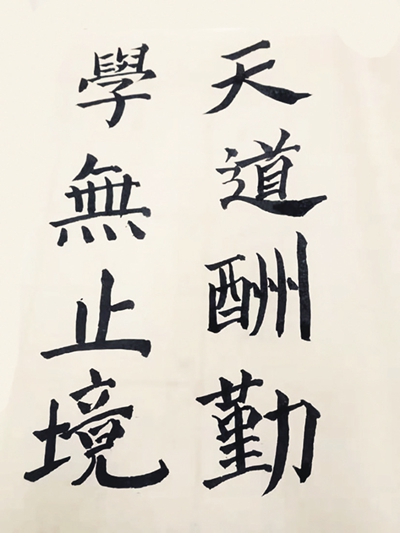 天道酬勤
學無止境